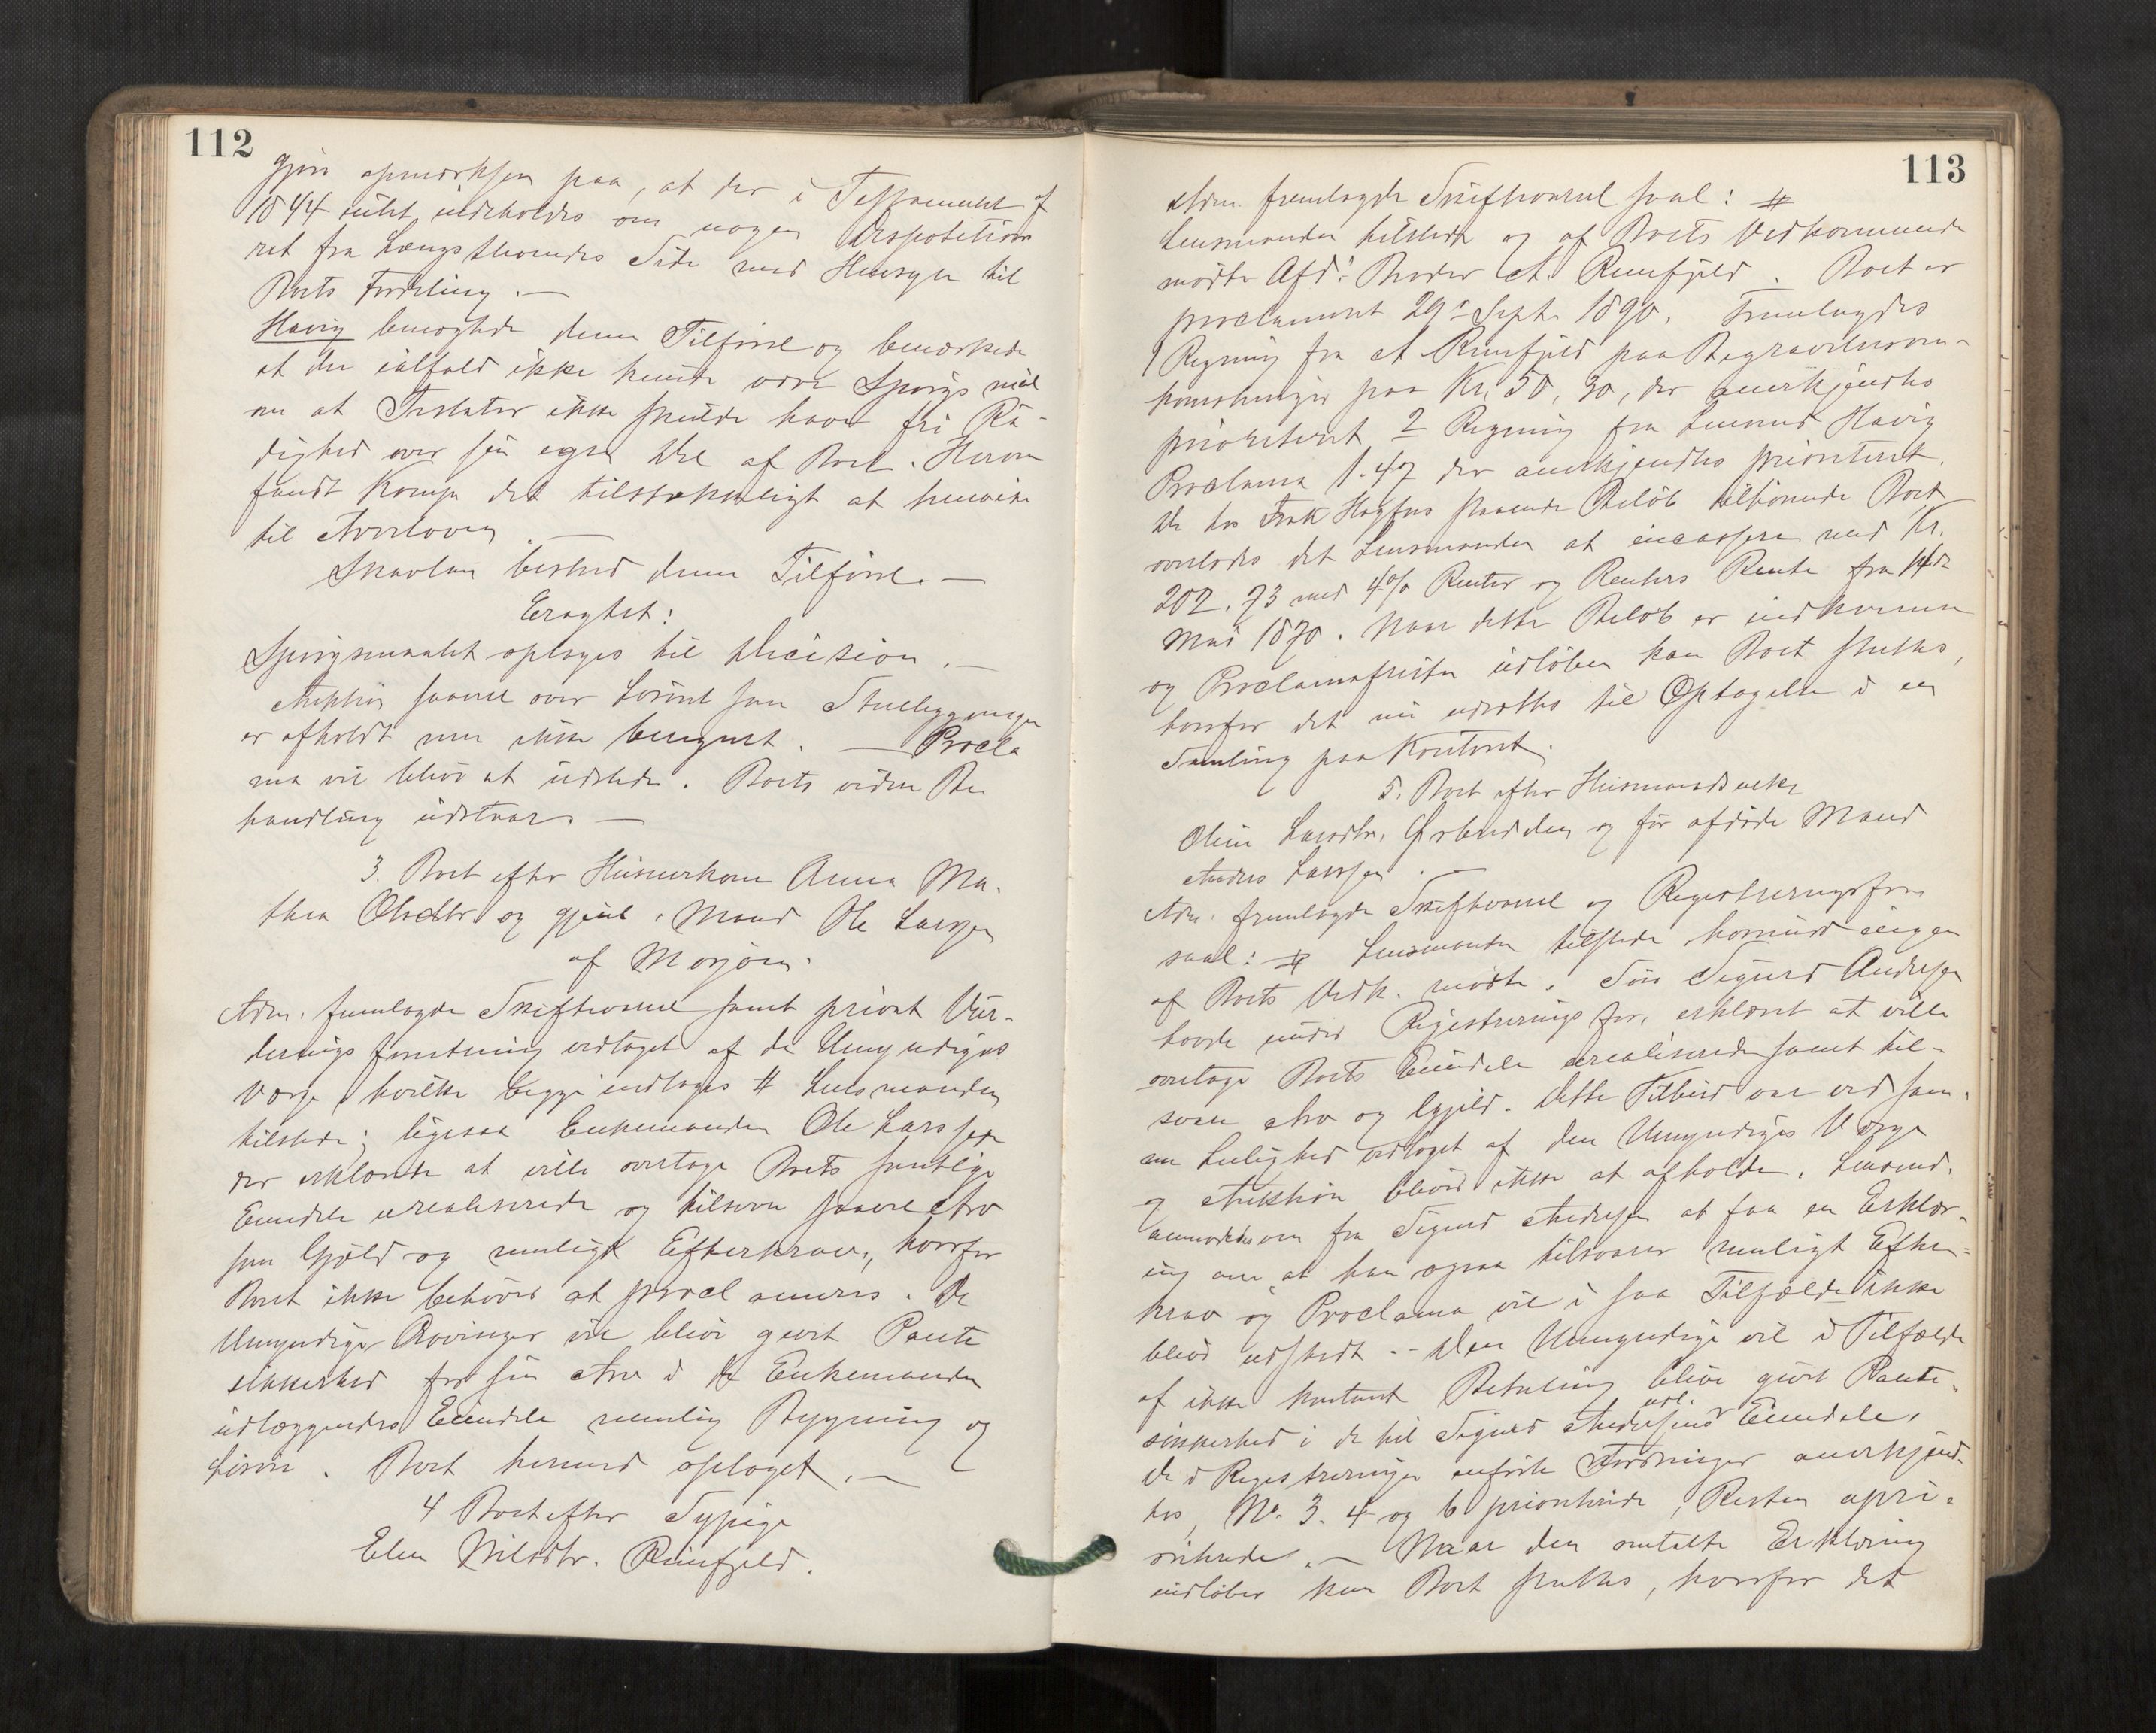 112
gjøre opmærksom paa, at der i Testamentet af
1844 intet indeholdes om nogen Disposition
ret fra Længstlevendes Side med Hensyn til
Boets Fordeling. —
Havig benegtede denne Tilførsel og bemærkede
at der ialfald ikke kunde være Spørgsmål
om at Testator ikke skulde have fri Rå-
dighed over sin egen Del af Boet. Herom
fandt Komp. det tilstrækkeligt at henvise
til Arveloven. —
Skavlan bestred denne Tilførsel. —
Eragtet:
Spørgsmaalet optages til Decision. —
Auktion saavel over Løsøret som Stuebygningen
er afholdt men ikke berigtet. — Procla
ma vil blive at udstede. Boets videre Be
handling udstaar. —
3. Boet efter Huusmrkone Anna Ma-
thea Olsdtr og gjenl. Mand Ole Larsen
af Mosjøen.
Adm. fremlagde Skiftevarsel samt privat Vur-
derings forretning vedtaget af de Umyndiges
Værge, hvilke begge indtages # Lensmanden
tilstede; ligesaa Enkemanden Ole Larssen
der erklærede at ville overtage Boets samtlige
Eiendele urealiserede og tilsvare saavel Arv
som Gjæld og muligt Efterkrav, hvorfor
Boet ikke behøver at proclameres. De
Umyndige Arvinger vil blive givet Pante
sikkerhed for sin Arv i de Enkemanden
udlæggendes Eiendele nemlig Bygning og
Løsøre. Boet hermed optaget. —
4 Boet efter Sypige
Elen Nilsdtr. Rimfjeld.
113
Adm. fremlagde Skiftevarsel saal: #
Lensmanden tilstede og af Boets Vedkommende
mødte Afd: Broder A. Rimfjeld. Boet er
proclameret 29de Septr 1890. Fremlagdes
1 Regning fra A Rimfjeld paa Begravelsesom-
komstninger paa Kr. 58,30, der anerkjendtes
prioriteret 2 Regning fra Lensmd Havig
Proclama 1.47 der anerkjendtes prioriteret.
De hos Isak Hagfors staaende Beløb tilhørende Boet
overlodes det Lensmanden at incassere med Kr.
207.73 med 4% Renter og Renters Rente fra 14de
Mai 1870. Naar dette Beløb er indkommen
og Proclamafristen udløben kan Boet sluttes,
hvorfor det nu udsættes til Optagelse i en
Samling paa Kontoret.
5. Boet efter Husmandsenke
Oline Larsdtr. og før afdøde Mand
Anders Larssen. —
Adm. fremlagde Skiftevarsel og Registreringsforr
saal: # Lensmanden tilstede hvorimod ingen
af Boets Vedk. mødte. Søn Sigurd Andersen
havde under Registrerings forr. erklæret at ville
overtage Boets Eiendele urealiserede samt til-
svare Arv og Gjæld. Dette Tilbud var ved sam-
me Leilighed vedtaget af den Umyndiges Værge
og Auktion blev ikke at afholde. Lensmd.
anmodedes om fra Sigurd Andersen at faa en Erklær-
ing om at han ogsaa tilsvarer muligt Efter-
krav og Proclama vil i saa Tilfælde ikke
blive udstedt. – Den Umyndige vil i Tilfælde
af ikke kontant Betaling blive givet Pante-
sikkerhed i de til Sigurd Andersens udl. Eiendele.
De i Registreringen anførte Fordringer anerkjend-
tes, No. 3. 4 og 6 prioriterede, Resten upri-
oriterede. — Naar den omtalte Erklæring
indløber kan Boet sluttes, hvorfor det